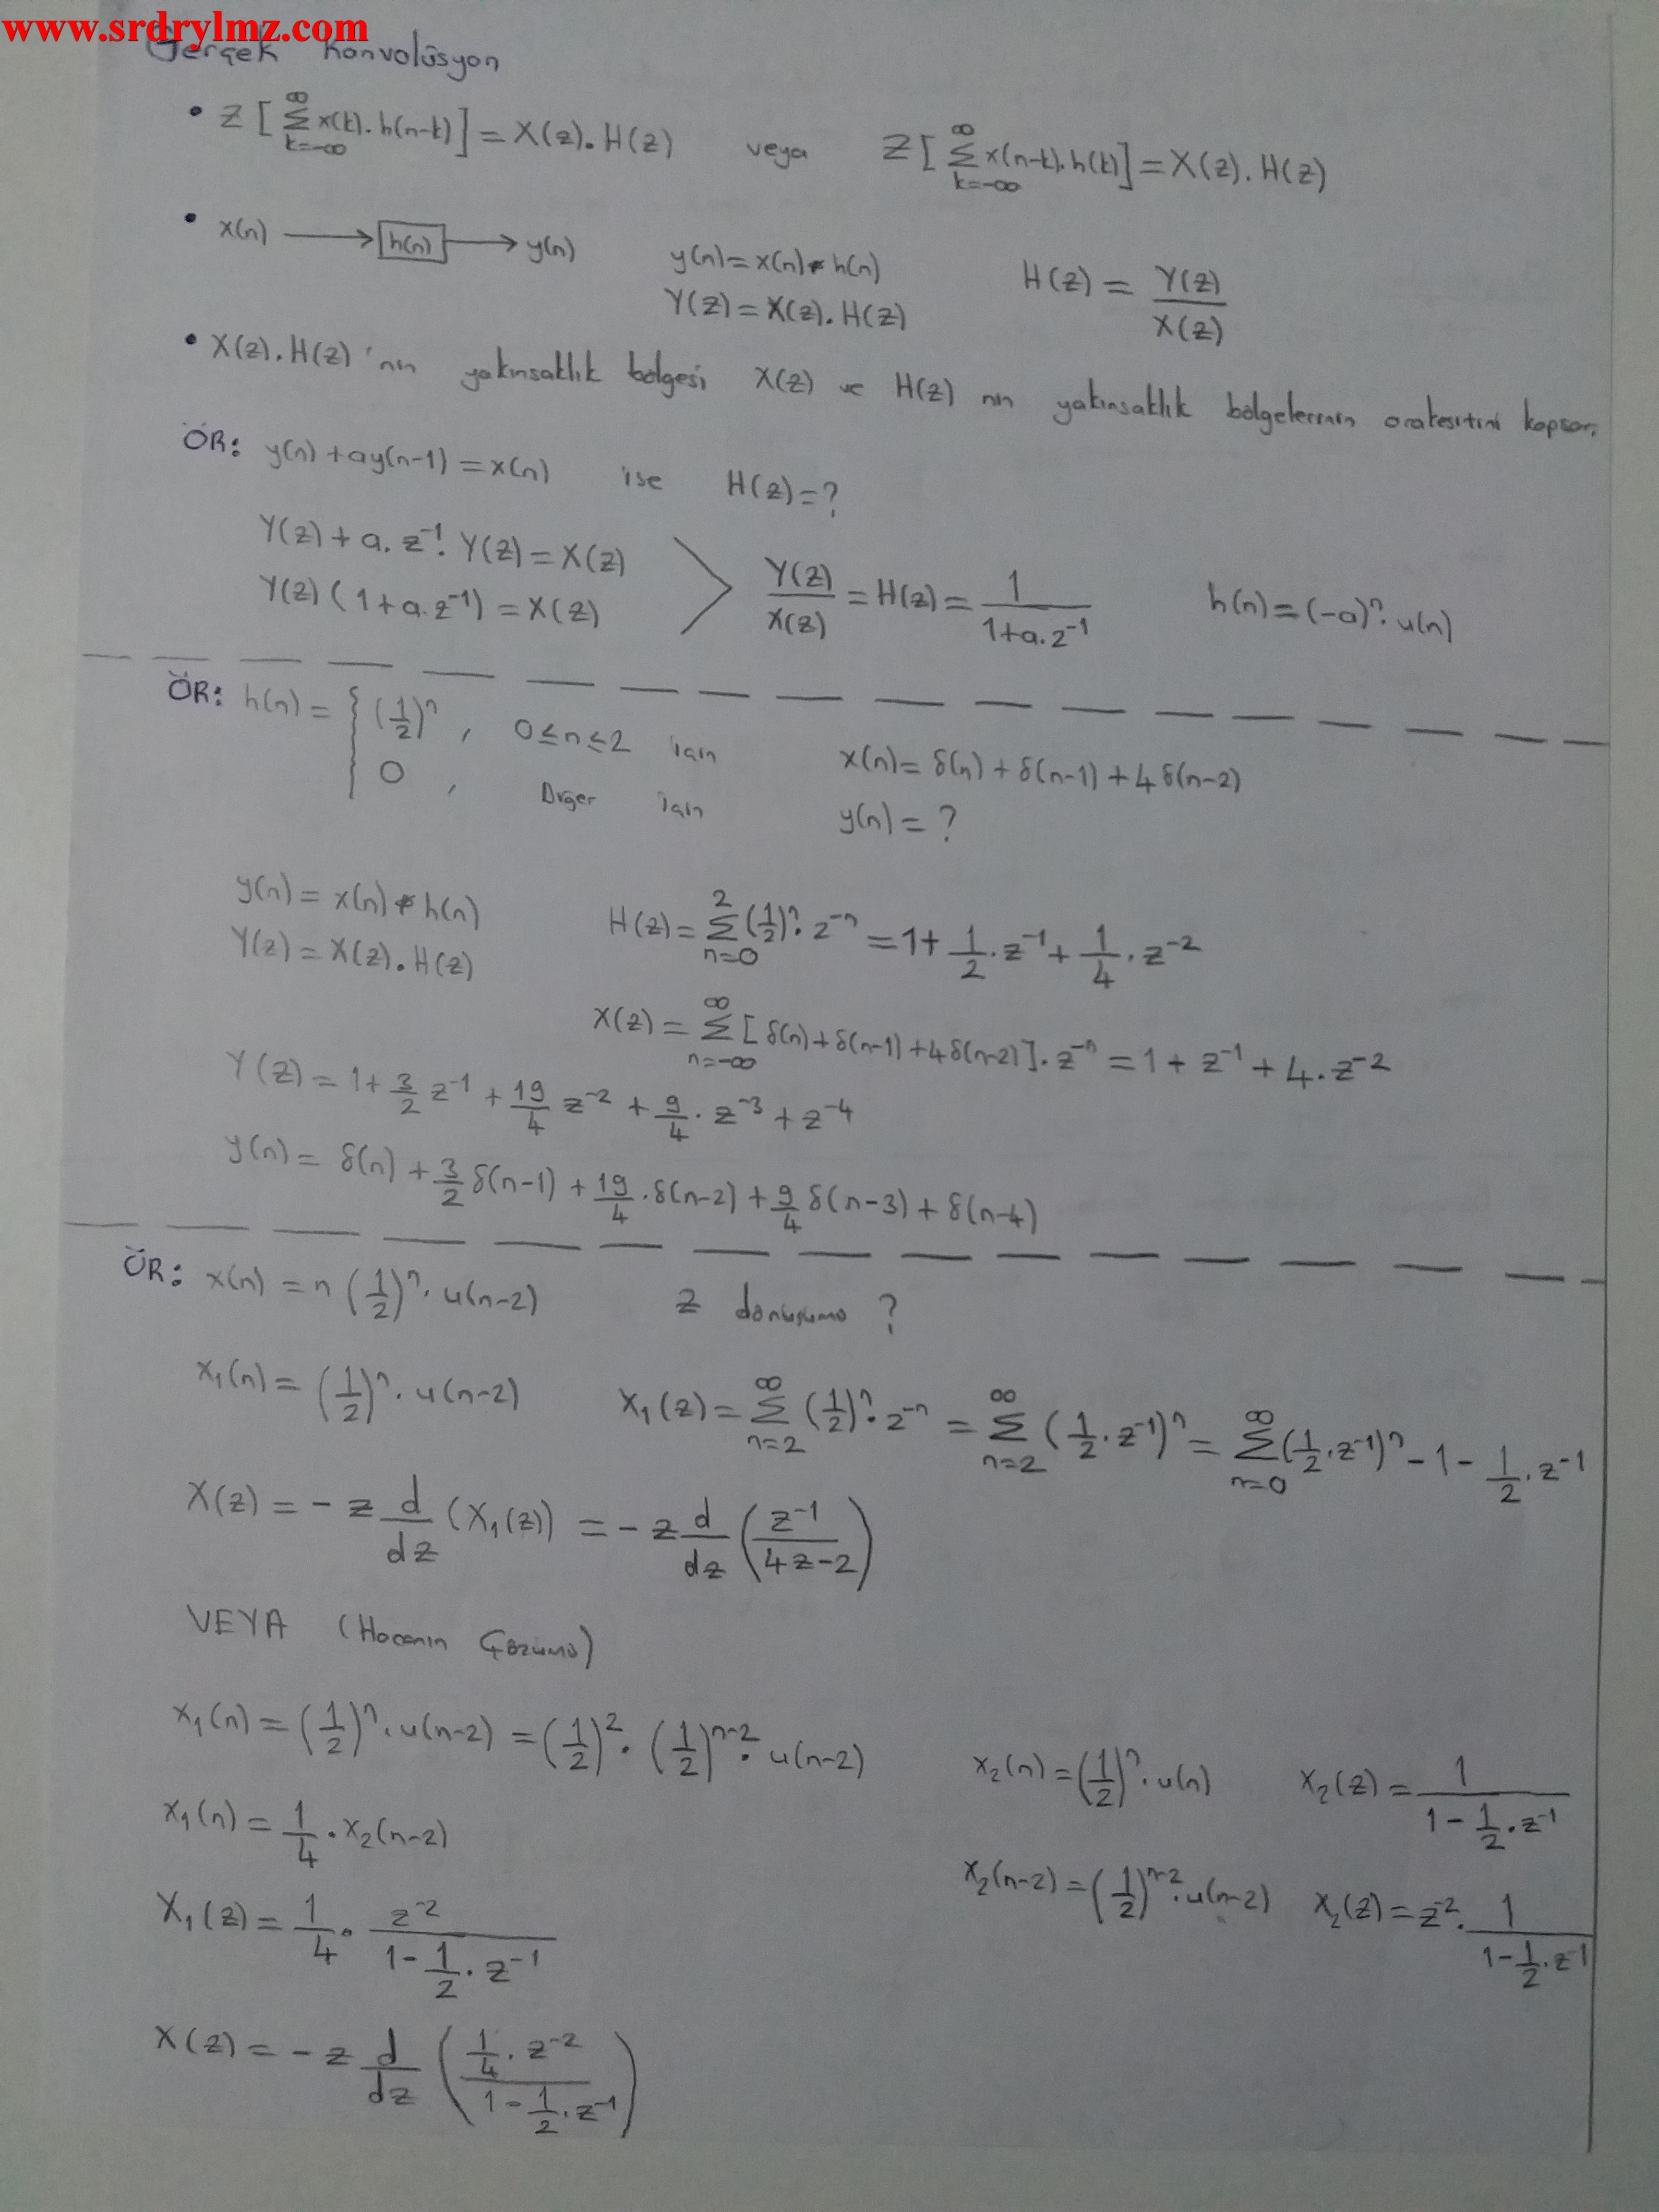 www.srdrylmz.com
Gerçek Konvolüsyon
• Z [ ∑_{k=-∞}^{∞} x(k).h(n-k) ] = X(z).H(z) veya Z [ ∑_{k=-∞}^{∞} x(n-k).h(k) ] = X(z).H(z)
• x(n) → h(n) → y(n) y(n) = x(n) * h(n) H(z) = Y(z)/X(z)
Y(z) = X(z).H(z)
• X(z).H(z) 'nın yakınsaklık bölgesi X(z) ve H(z) nın yakınsaklık bölgelerinin orakesitini kapsar.
ÖR: y(n) + ay(n-1) = x(n) ise H(z) = ?
Y(z) + a.z^{-1}.Y(z) = X(z)
Y(z) (1 + a.z^{-1}) = X(z) > Y(z)/X(z) = H(z) = 1/(1+a.z^{-1}) h(n) = (-a)^n.u(n)
ÖR: h(n) = { (1/2)^n , 0≤n≤2 için x(n) = δ(n) + δ(n-1) + 4δ(n-2)
0 , Diğer için y(n) = ?
y(n) = x(n) * h(n) H(z) = ∑_{n=0}^{2} (1/2)^n.z^{-n} = 1 + 1/2.z^{-1} + 1/4.z^{-2}
Y(z) = X(z).H(z)
X(z) = ∑_{n=-∞}^{∞} [δ(n) + δ(n-1) + 4δ(n-2)].z^{-n} = 1 + z^{-1} + 4.z^{-2}
Y(z) = 1 + 3/2 z^{-1} + 19/4 z^{-2} + 9/4.z^{-3} + z^{-4}
y(n) = δ(n) + 3/2 δ(n-1) + 19/4.δ(n-2) + 9/4 δ(n-3) + δ(n-4)
ÖR: x(n) = n (1/2)^n.u(n-2) z dönüşümü ?
x₁(n) = (1/2)^n.u(n-2) X₁(z) = ∑_{n=2}^{∞} (1/2)^n.z^{-n} = ∑_{n=2}^{∞} (1/2.z^{-1})^n = ∑_{n=0}^{∞} (1/2.z^{-1})^n - 1 - 1/2.z^{-1}
X(z) = -z d/dz (X₁(z)) = -z d/dz (z^{-1}/(4z-2))
VEYA (Hocanın Çözümü)
x₁(n) = (1/2)^n.u(n-2) = (1/2)^2.(1/2)^{n-2}.u(n-2) x₂(n) = (1/2)^n.u(n) X₂(z) = 1/(1 - 1/2.z^{-1})
x₁(n) = 1/4.x₂(n-2)
x₂(n-2) = (1/2)^{n-2}.u(n-2) X₂(z) = z^{-2}.1/(1 - 1/2.z^{-1})
X₁(z) = 1/4.z^{-2}/(1 - 1/2.z^{-1})
X(z) = -z d/dz ((1/4.z^{-2})/(1 - 1/2.z^{-1}))